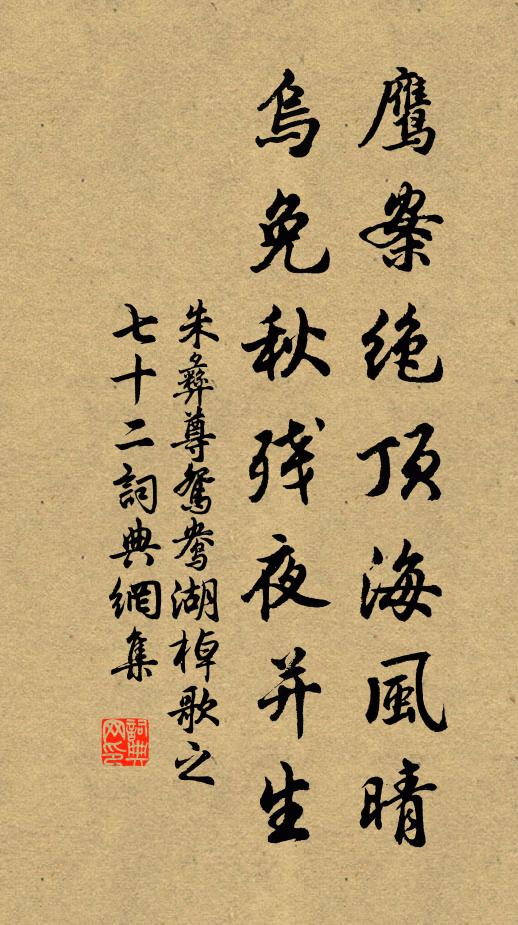 鷹窠绝顶海風晴
烏兔秋残夜并生
朱彝尊鴛鴦湖棹歌之
七十二詞典網集
詞典
网印